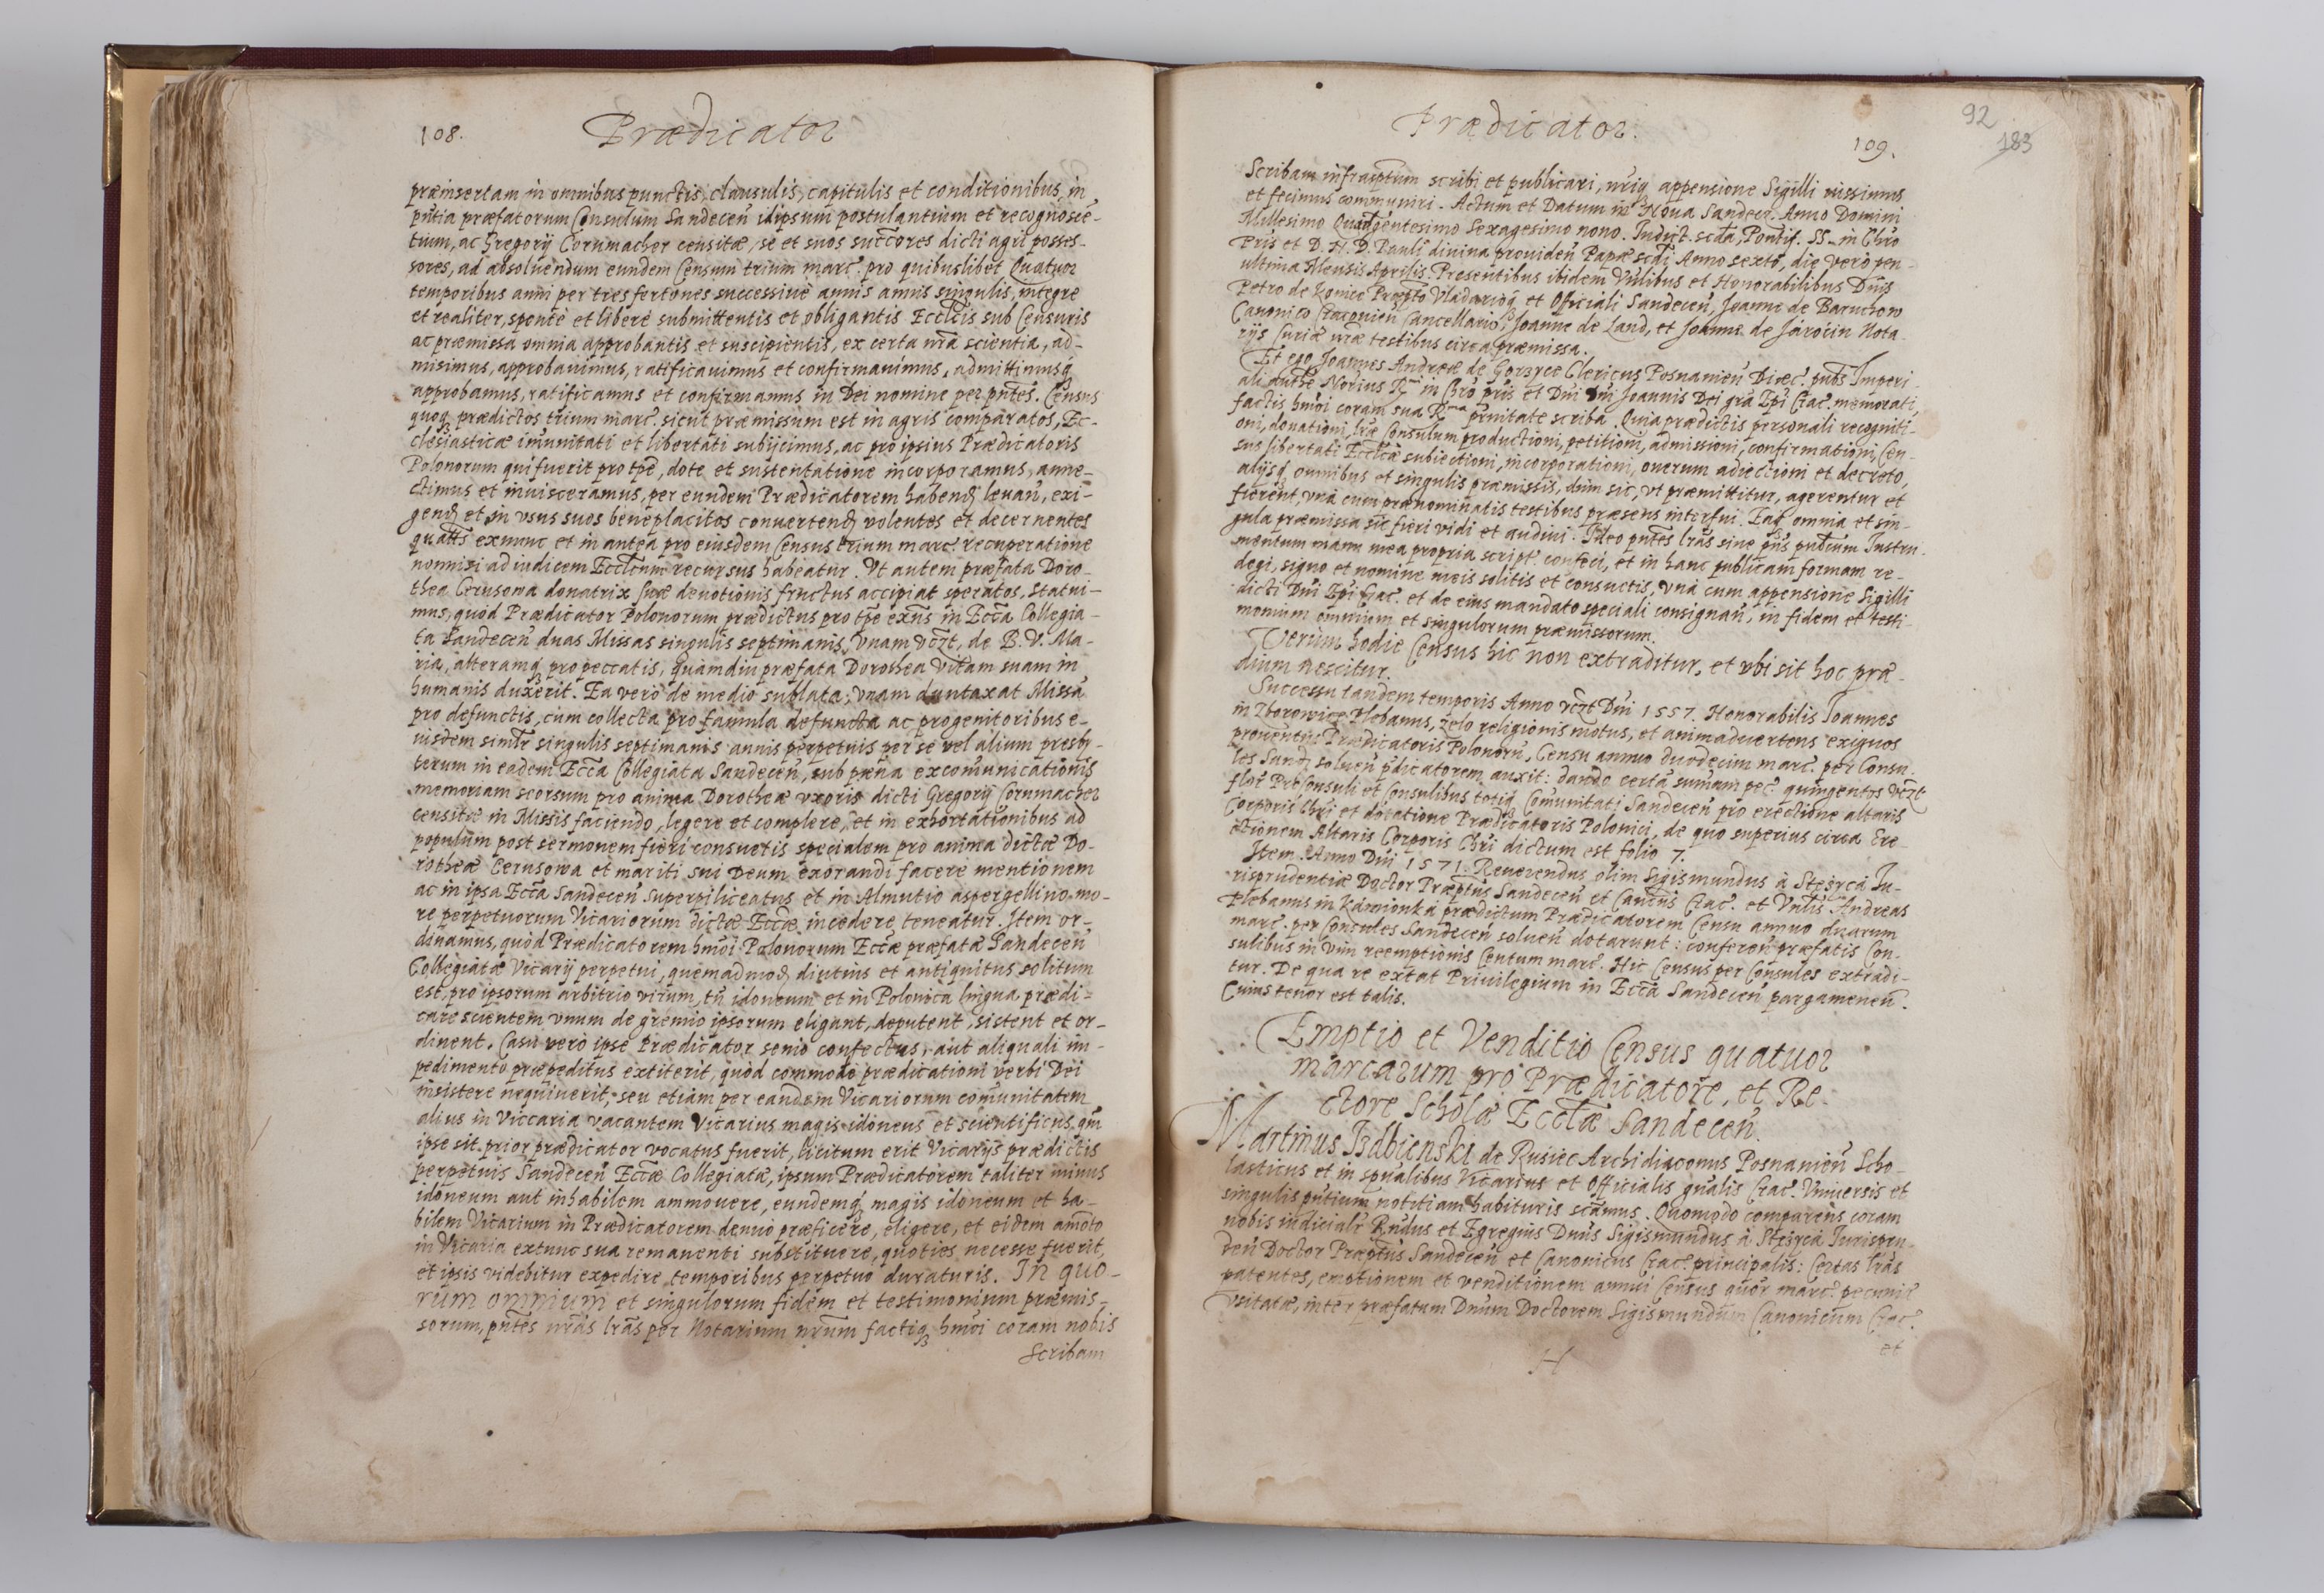 108.
Prædicator
præinsertam in omnibus punctis, clausulis, capitulis et conditionibus, in
pñtia præfatorum Consulum Sandeceñ idipsum postulantium et recognoscē-
tium, ac Gregorÿ Cornmacher censitæ, se et suos succ̃ores dicti agri posses-
sores, ad absoluendum eundem Censum trium marc̃. pro quibuslibet Quatuor
temporibus anni per tres fertones successiuè annis annis singulis, integre
et realiter, sponte et liberè submittentis et obligantis Eccl̃cis sub Censuris
ac præmissa omnia approbantis et suscipientis, ex certa nr̃a scientia, ad-
misimus, approbauimus, ratificauimus et confirmauimus, admittimusq̃
approbamus, ratificamus et confirmamus in Dei nomine per pñtes. Census
quoq̃ prædictos trium marc̃. sicut præmissum est in agris comparatos, Ec-
clesiasticæ im̃unitati et libertati subijcimus, ac pro ipsius Prædicatoris
Polonorum qui fuerit pro tp̃e, dote et sustentatione incorporamus, anne-
ctimus et inuisceramus, per eundem Prædicatorem habend̃ leuañ, exi-
gend̃ et in vsus suos beneplacitos conuertend̃ volentes et decernentes
quatt̃s exnunc et in antea pro eiusdem Census trium marc̃. recuperatione
nonnisi ad iudicem Eccl̃cum recursus habeatur. Vt autem præfata Doro-
thea Cerusowa donatrix suæ deuotionis fructus accipiat speratos, Statui-
mus, quòd Prædicator Polonorum prædictus pro tp̃e exñs in Ecc̃a Collegia-
ta Sandeceñ duas Missas singulis septimanis, Vnam vcz̃t, de B. V. Ma-
ria, alteramq̃ pro peccatis, quamdiu præfata Dorothea vitam suam in
humanis duxerit. Ea verò de medio sublata, vnam duntaxat Missā
pro defunctis, cum collecta pro famula defuncta ac progenitoribus e-
iusdem simlr̃ singulis septimanis annis perpetuis per se vel alium presby-
terum in eadem Ecc̃a Collegiata Sandeceñ, sub pæna excom̃unicationis
memoriam seorsum pro anima Dorotheæ vxoris dicti Gregorÿ Cornmacher
censitæ in Missis faciendo, legere et complere, et in exhortationibus ad
populum post sermonem fieri consuetis specialem pro anima dictæ Do-
rotheæ Cerusowa et mariti sui Deum exorandi facere mentionem
ac in ipsa Ecc̃a Sandeceñ Superpiliceatus et in Almutio aspergellino mo-
re perpetuorum Vicariorum dictæ Eccæ incedere teneatur. Item or-
dinamus, quòd Prædicatorem hm̃oi Polonorum Eccæ præfatæ Sandeceñ
Collegiatæ Vicarÿ perpetui, quemadmod̃ diutius et antiquitus solitum
est, pro ipsorum arbitrio virum, tñ idoneum et in Polonica lingua prædi-
care scientem vnum de gremio ipsorum eligant, deputent, sistent et or-
dinent. Casu verò ipse Prædicator senio confectus, aut aliquali im-
pedimento præpeditus extiterit, quòd commodè prædicationi verbi Dei
insistere nequiuerit, seu etiam per eandem Vicariorum com̃unitatem
alius in Viccaria vacantem Vicarius magis idoneus et scientificus, qm̃
ipse sit prior prædicator vocatus fuerit, licitum erit Vicarÿs prædictis
perpetuis Sandeceñ Eccæ Collegiatæ, ipsum Prædicatorem taliter minus
idoneum aut inhabilem ammouere, eundemq̃ magis idoneum et ha-
bilem Vicarium in Prædicatorem denuò præficere, eligere, et eidem amoto
in Vicaria extunc sua remanenti substituere, quoties necesse fuerit,
et ipsis videbitur expedire temporibus perpetuo duraturis. In quo-
rum omnium et singulorum fidem et testimonium præmis-
sorum, pñtes nr̃as lr̃as per Notarium nr̃um factiq̃ hm̃oi coram nobis
Scribam
Prædicator.
109.
92
183
Scribam infrasptum scribi et publicari, nr̃iq̃ appensione Sigilli iussimus
et fecimus communiri. Actum et Datum in Noua Sandecz. Anno Domini
Millesimo Quadgentesimo Sexagesimo nono. Indict. scda, Pontif. SS. in Chro
Pris et D. N. D. Pauli diuina prouideñ Papæ scdi Anno sexto, die verò pen-
ultima Mensis Aprilis. Presentibus ibidem Vnlibus et Honorabilibus Dñis
Petro de Konice Præpto Vladarioq̃ et Officiali Sandeceñ, Joanne de Baruchow
Canonico Cracouien Cancellario, Joanne de Land, et Joanne de Jarocin Nota-
rÿs Curiæ nræ testibus circa præmissa.
Et ego Joannes Andreæ de Gorzyce Clericus Posnanieñ Diæc̃. pubs Imperi-
ali autħe Norius Rmi in Chro pris et Dni Dni Joannis Dei grã Epi Crac̃. memorati,
factis hm̃oi coram sua Rma prnitate scriba. Quia prædictis personali recogniti-
oni, donationi, lræ Consulum productioni, petitioni, admissioni, confirmationi, Cen-
sus libertati Eccl̃cæ subiectioni, incorporationi, onerum adiectioni et decreto,
alÿsq̃ omnibus et singulis præmissis, dum sic, vt præmittitur, agerentur et
fierent, vnà cum prænominatis testibus præsens interfui. Eaq̃ omnia et sin-
gula præmissa sic fieri vidi et audiui. Ideo pñtes lr̃as siue pñs pubcum Instru-
mentum manu mea propria script̃. confeci, et in hanc publicam formam re-
degi, signo et nomine meis solitis et consuetis, vnà cum appensione Sigilli
dicti Dni Epi Crac̃. et de eius mandato speciali consignañ, in fidem et testi-
monium omnium et singulorum præmissorum.
Verùm hodie Census hic non extraditur, et vbi sit hoc præ-
dium nescitur.
Successu tandem temporis Anno vcz̃t Dni 1557. Honorabilis Joannes
in Zborowice Plebanus, zelo religionis motus, et animaduertens exiguos
prouentus Prædicatoris Polonorū, Censu annuo duodecim marc̃. per Consu-
les Sand̃ soluen p̃dicatorem auxit: dando certā sum̃am pec̃. quingentos vcz̃t
flor̃ PreConsuli et Consulibus totiq̃ Com̃unitati Sandeceñ pro erectione altaris
Corporis Chri et dotatione Prædicatoris Polonici, de quo superius circa Ere-
ctionem Altaris Corporis Chri dictum est folio 7.
Item Anno Dni 1571. Reuerendus olim Sigismundus à Stęzyca Ju-
risprudentiæ Doctor Præptus Sandeceñ et Canc̃us Crac̃. et Vnlis Andreas
Plebanus in Kamionka prædictum Prædicatorem Censu annuo duarum
marc̃. per Consules Sandeceñ solueñ dotarunt: confereñ præfatis Con-
sulibus in vim reemptionis Centum marc̃. Hic Census per Consules extradi-
tur. De qua re extat Priuilegium in Ecc̃a Sandeceñ pargameneū.
Cuius tenor est talis.
Emptio et Venditio Census quatuor
marcarum pro Prædicatore, et Re-
ctore Scholæ Eccl̃æ Sandeceñ.
Martinus Izdbienski de Rusiec Archidiaconus Posnanieñ Scho-
lasticus et in spũalibus Vicarius et Officialis gñalis Crac̃. Vniuersis et
singulis pñtium notitiam habituris scãmus. Quomodo comparens coram
nobis iudicialr̃ Rñdus et Egregius Dnus Sigismundus à Stęzyca Iurispru-
deñ Doctor Præptus Sandeceñ et Canonicus Crac̃. principalis: Certas lr̃as
patentes, emptionem et venditionem annui Census quor̃ marc̃. pecuniæ
vsitatæ, inter præfatum Dnum Doctorem Sigismundum Canonicum Crac̃.
H
et